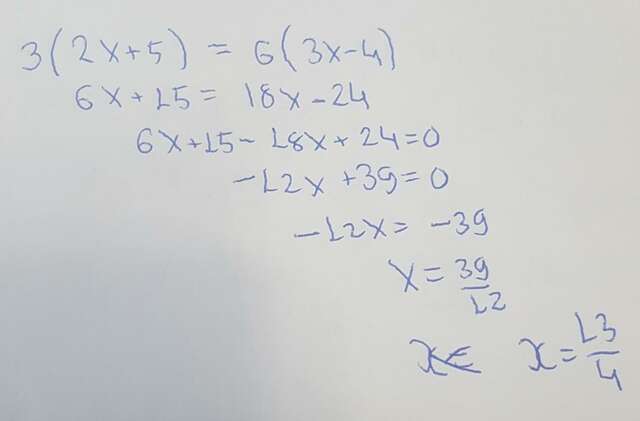 3(2x+5) = 6(3x-4)
6x+15 = 18x-24
6x+15-18x+24=0
-12x+39=0
-12x = -39
x = 39/12
x = 13/4